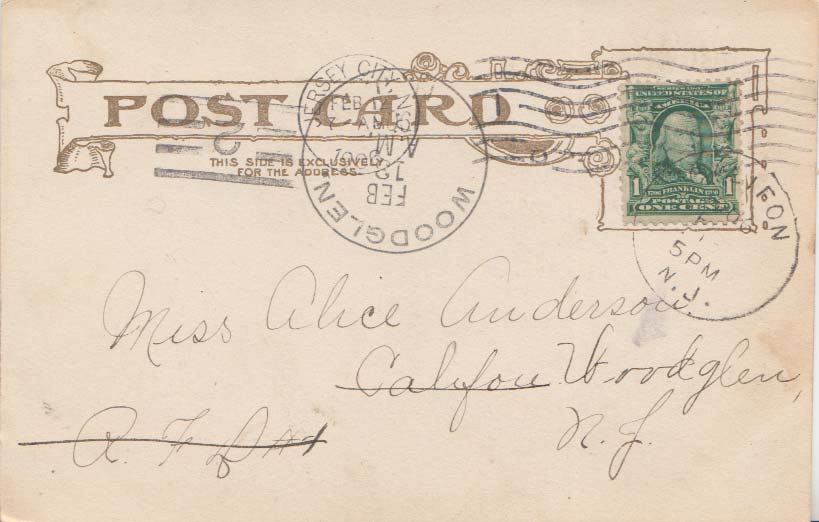 POST CARD
THIS SIDE IS EXCLUSIVELY
FOR THE ADDRESS
JERSEY CITY, N.J.
FEB
AM
WOODGLEN
FEB
12
A.M.
N.J.
SERIES 1902
UNITED STATES OF
AMERICA
1 FRANKLIN 1
POSTAGE
ONE CENT
5 PM
N.J.
Miss Alice Anderson
Califon Woodglen,
R. F. D. N. J.